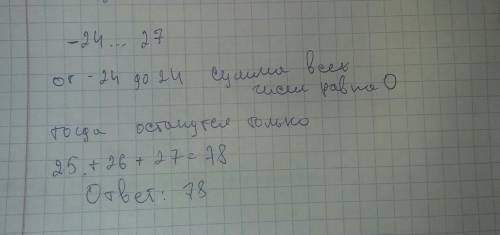 -24... 27
от -24 до 24 сумма всех
чисел равна 0
тогда останутся только
25 + 26 + 27 = 78
Ответ: 78